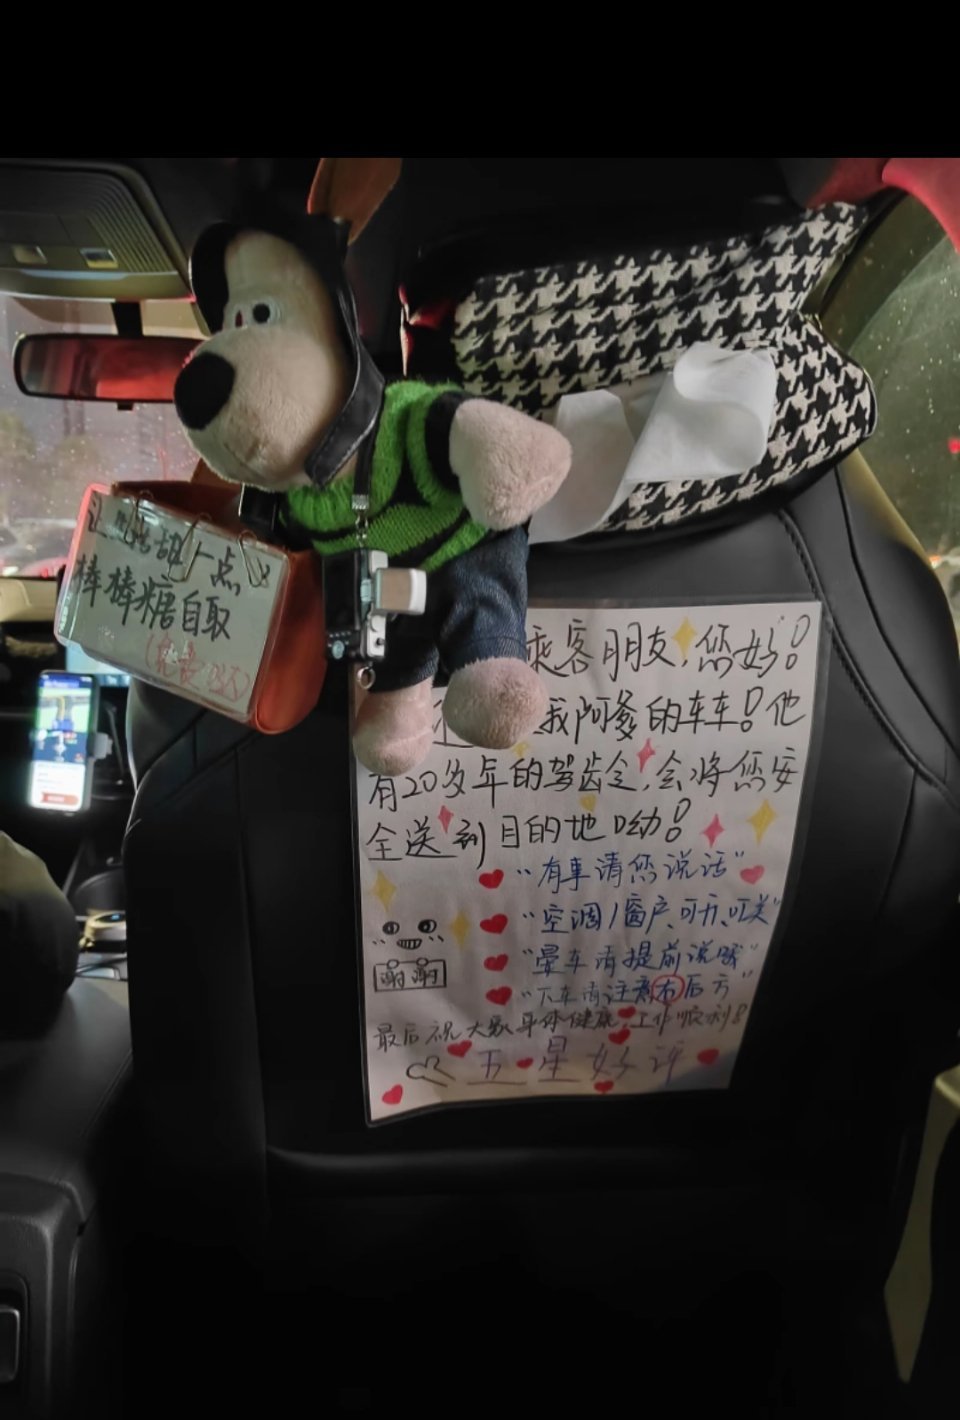 一点
棒棒糖自取
乘客朋友,您好!
我阿爹的车车!他
有20多年的驾龄令,会将您安
全送到目的地呦!
"有事请您说话"
"空调/窗户、可开、可关"
"晕车请提前说哦"
"下车请注意右后方"
谢谢
最后祝大家身体健康,工作顺利!
五星好评